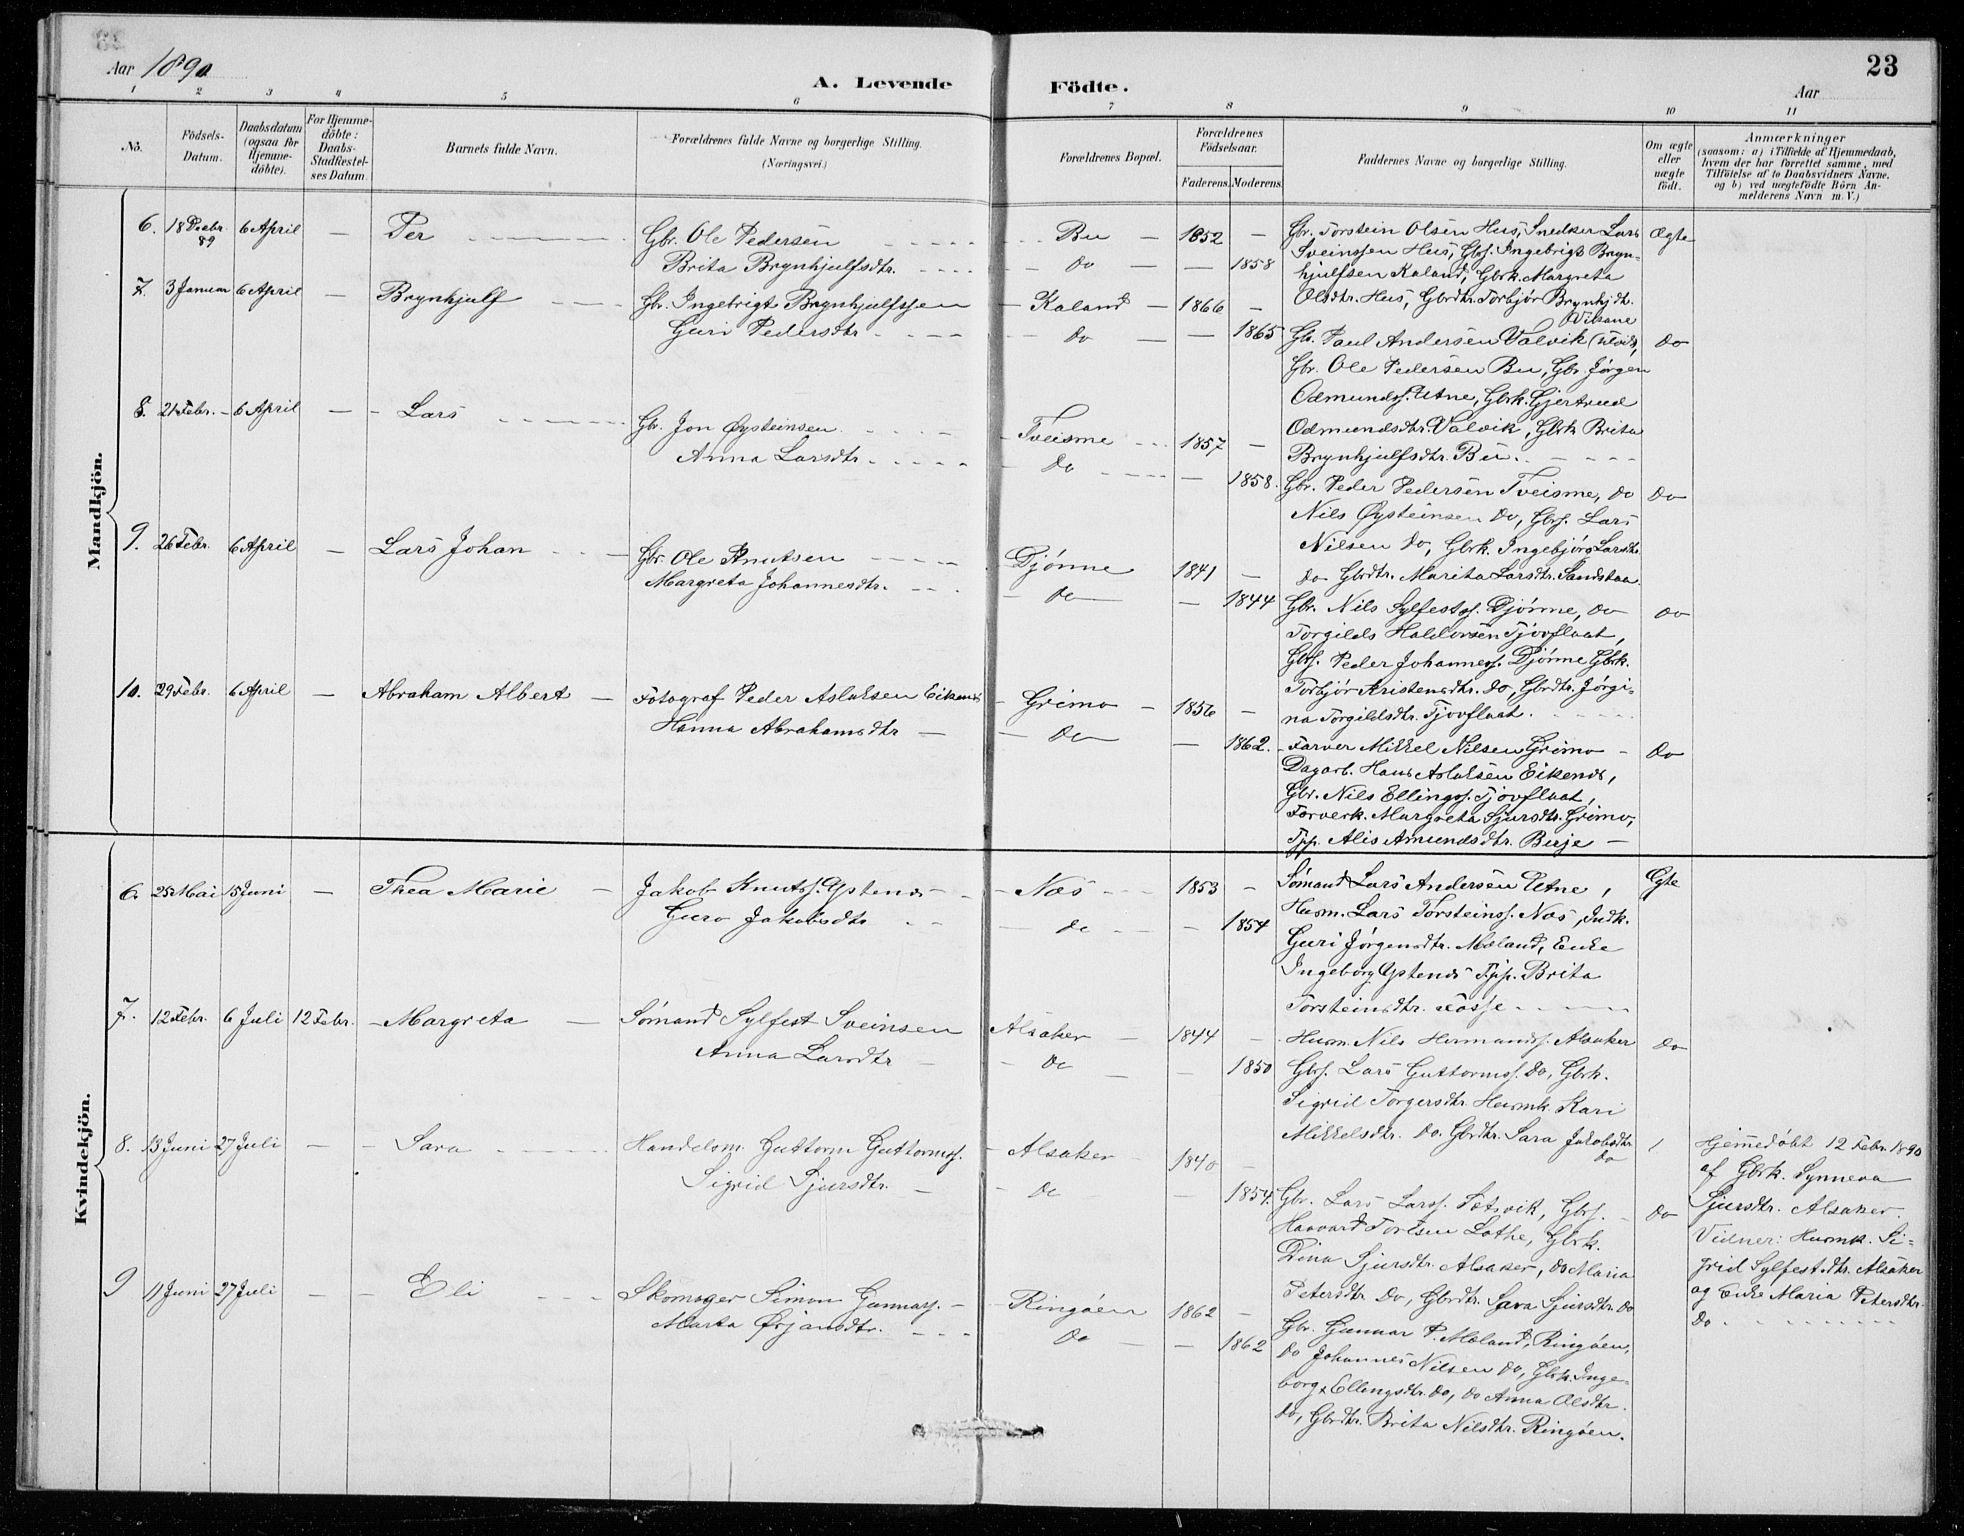 Aar 1890
A. Levende Födte.
23
Aar
1 2 3 4 5 6 7 8 9 10 11
No.
Födsels-
Datum.
Daabsdatum
(ogsaa for
Hjemme-
döbte).
For Hjemme-
döbte:
Daabs-
Stadfæstel-
ses Datum.
Barnets fulde Navn.
Forældrenes fulde Navne og borgerlige Stilling.
(Næringsvei.)
Forældrenes Bopæl.
Forældrenes
Födselsaar.
Faderens. Moderens.
Faddernes Navne og borgerlige Stilling.
Om ægte
eller
uægte
födt.
Anmærkninger
(saasom: a) i Tilfælde af Hjemmedaab,
hvem der har forrettet samme, med
Tilföielse af to Daabsvidners Navne,
og b) ved uægtefödte Börn An-
melderens Navn m. V.)
Mandkjön.
6. 18 Decbr. 89 6 April — Per
Gbr. Ole Pedersen Bu — 1852 —
Brita Brynhjulfsdtr. Do — — 1858
Gbr. Torstein Olsen Hus, Snedker Lars
Sveinssen Hus, Gbs. Ingebrigt Bryn-
hjulfsen Kaland, Gbrk. Margreta
Olsdtr. Hus, Gbrdtr. Torbjør Brynhjdtr.
Vikane
Ægte
7. 3 Januar 6 April — Brynhjulf
Gbr. Ingebrigt Brynhjulfssen — Kaland — 1866 —
Guri Pedersdtr. Do — — 1865
Gbr. Paul Andersen Valvik
Gbr. Ole Pedersen Bu, Gbr. Jørgen
Odmundss. Utne, Gbrk. Gjertrud
Odmundsdtr. Valvik, Gbrk Brita
Brynhjulfsdtr. Bu.
Do
8. 21 Febr. — 6 April — Lars
Gbr. Jon Øysteinsen Tveisme 1857 —
Anna Larsdtr. Do — 1858.
Gbr. Peder Pedersen Tveisme, Do
Nils Øysteinsen Do, Gbs. Lars
Nilsen Do, Gbrk. Ingebjørg Larsdtr.
Do Gbrdtr. Marita Larsdtr. Sandstaa.
Do
9. 26 Febr. 6 April — Lars Johan
Gbr. Ole Knutsen Djønne 1841 —
Margreta Johannesdtr. Do — 1844
Gbr. Nils Sylfestss. Djønne, Do
Torgilds Haldorsen Tjovflaat,
Gbs. Peder Johanness. Djønne Gbrk.
Torbjør Kristensdtr. Do, Gbrdtr. Jørgi-
na Torgildsdtr. Tjovflaat.
Do
10. 29 Febr. 6 April — Abraham Albert —
Fotograf Peder Aslaksen Eikenæs — Grimo — 1856 —
Hanna Abrahamsdtr — Do — 1862.
Farver Mikkel Nilsen Grimo —
Dagarb. Hans Aslaksen Eikenæs,
Gbr. Nils Ellingss. Tjovflaat,
Farverk. Margreta Sjursdtr. Grimo,
Tjp. Alis Amundsdtr. Birje —
Do
Kvindekjön.
6. 25 Mai 15 Juni — Thea Marie —
Jakob Knutss. Ystenæs — Næs 1853 —
Guro Jakobsdtr Do — 1854
Sømand Lars Andersen Utne,
Husm. Lars Torsteinss. Næs, Indk.
Guri Jørgensdtr. Mæland, Enke
Ingeborg Ystenæs Tjp. Brita
Torsteinsdtr. Fosse
Ægte
7. 12 Febr. 6 Juli 12 Febr. — Margreta —
Sømand Sylfest Sveinsen Alsaker — 1844 —
Anna Larsdtr — Do — 1850
Husm. Nils Hermundss. Alsaker
Gbs. Lars Guttormss. Do, Gbrk.
Sigrid Torgersdtr. Husmk. Kari
Mikkelsdtr. Do. Gbrdtr. Sara Jakobsdtr.
Do
Do
Hjemedøbt 12 Febr. 1890
af Gbrk. Synneva
Sjursdtr. Alsaker.
Vidner: Husmk. Si-
grid Sylfestsdtr. Alsaker
og Enke Maria Petersdtr.
Do
8. 13 Juni 27 Juli — — Sara
Handelsm. Guttorm Guttormss. — Alsaker 1840 —
Sigrid Sjursdtr. — Do — 1854.
Gbr. Lars Larss. Sætsvik, Gbs.
Haavard Torlsen Lothe, Gbrk.
Dina Sjursdtr. Alsaker, Do Maria
Petersdtr Do, Gbrdtr. Sara Sjursdtr. Do
Do
9 11 Juni 27 Juli — — Eli
Skomager Simon Gunnars. — Ringøen 1862 —
Marta Ørjansdtr. Do — 1862
Gbr. Gunnar P. Mæland, Ringøen,
Do Johannes Nilsen Do, Gbrk. Inge-
borg Ellingsdtr. Do, Do Anna Olsdtr.
Do, Gbrdtr. Brita Nilsdtr. Ringøen.